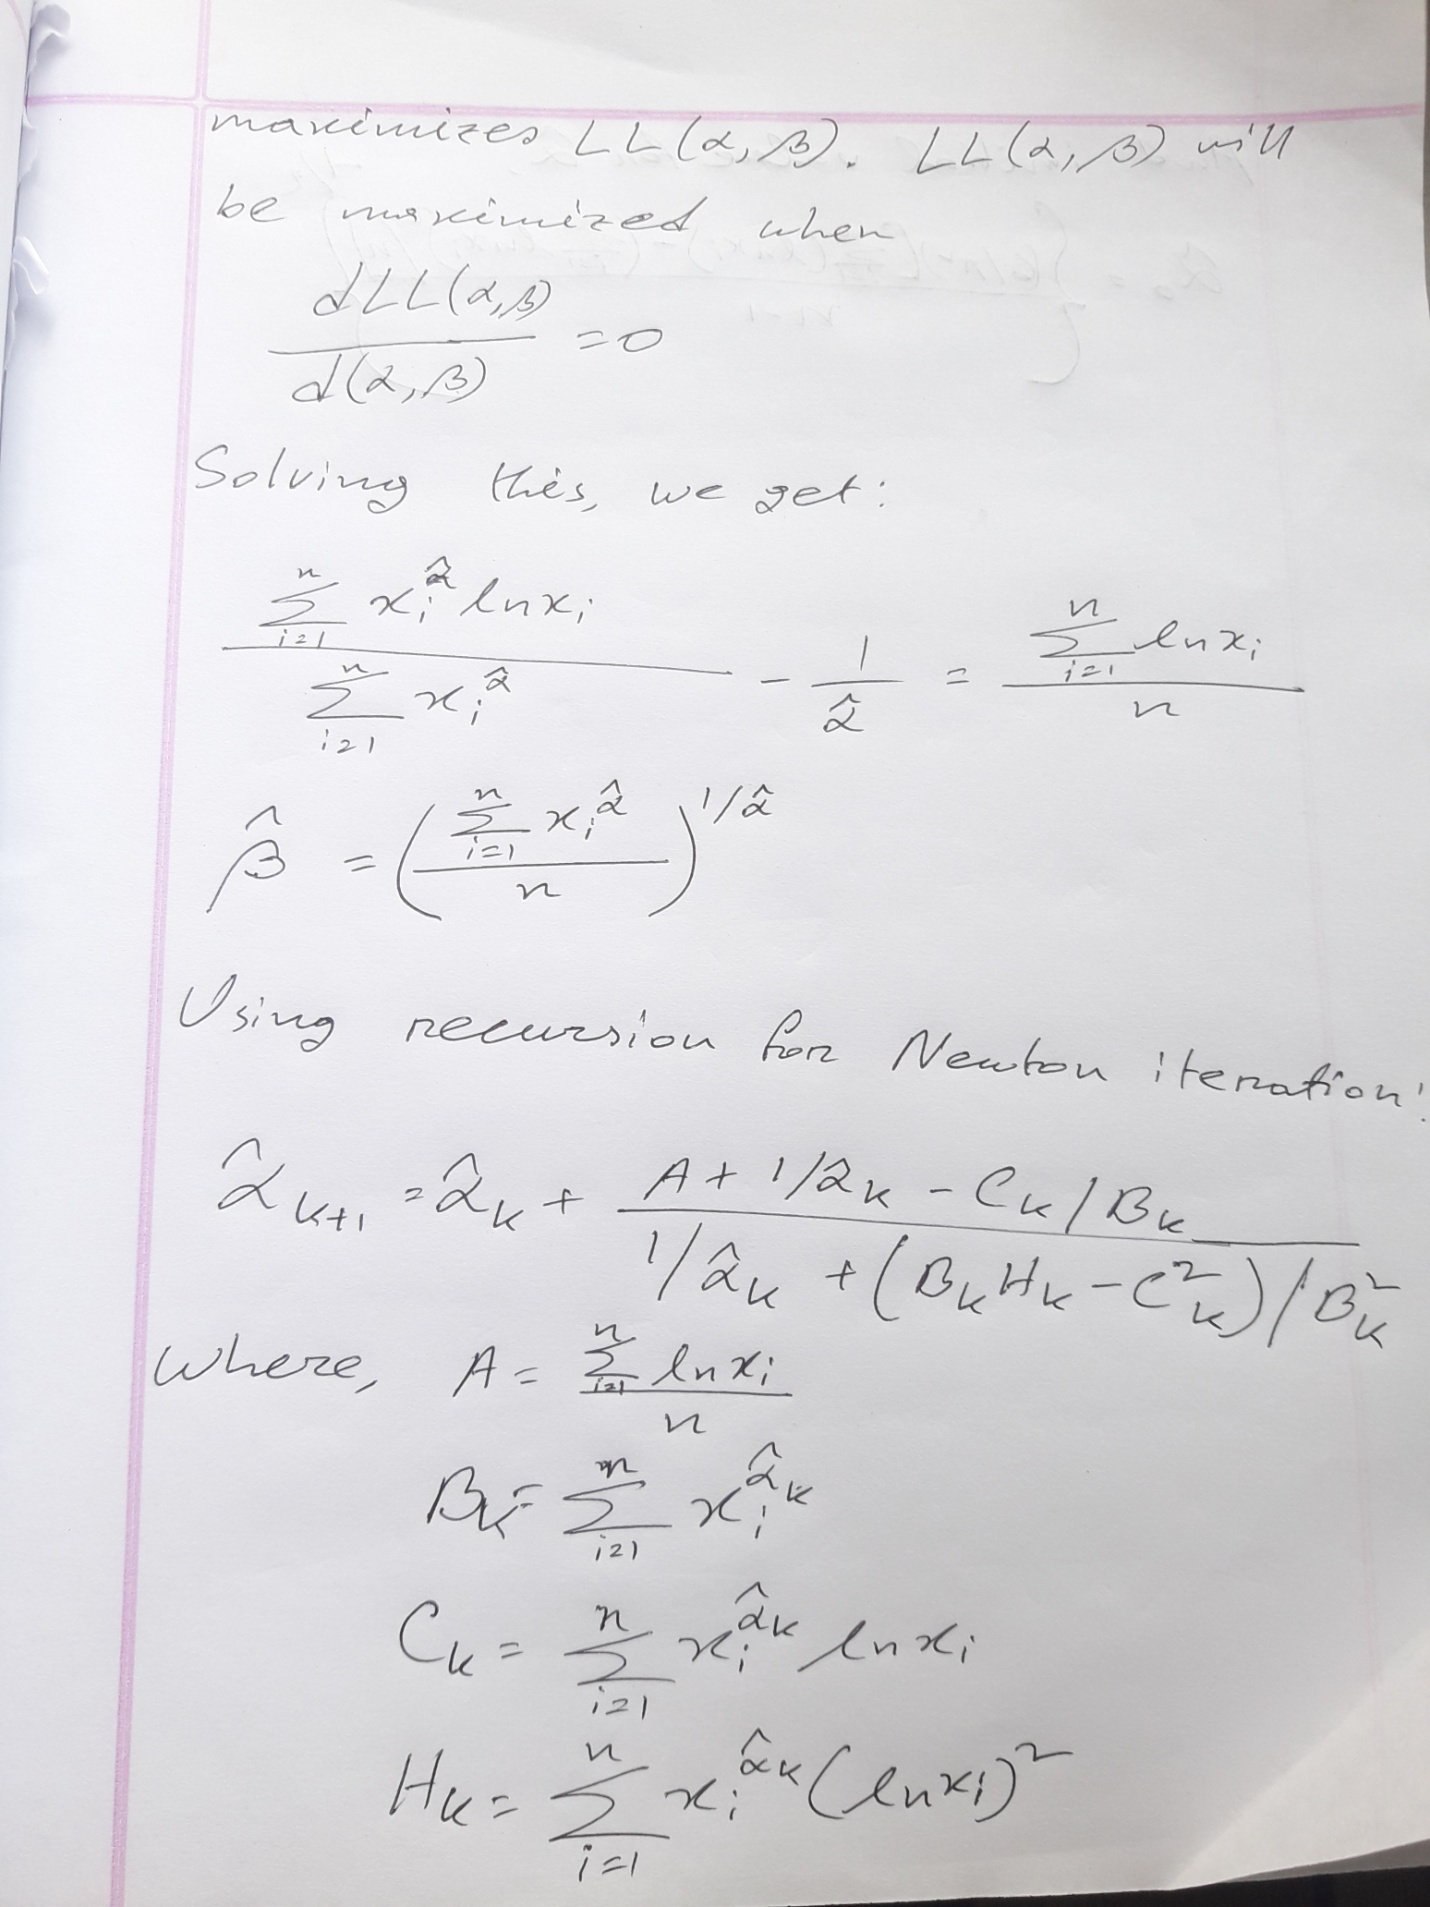 maximizes LL(α,β). LL(α,β) will
be maximized when
dLL(α,β) / d(α,β) = 0
Solving this, we get:
∑_{i=1}^{n} x_i^{α̂} ln x_i / ∑_{i=1}^{n} x_i^{α̂} - 1/α̂ = ∑_{i=1}^{n} ln x_i / n
β̂ = (∑_{i=1}^{n} x_i^{α̂} / n)^{1/α̂}
Using recursion for Newton iteration:
α̂_{k+1} = α̂_k + (A + 1/α̂_k - C_k/B_k) / (1/α̂_k + (B_k H_k - C_k^2)/B_k^2)
where, A = ∑_{i=1}^{n} ln x_i / n
B_k = ∑_{i=1}^{n} x_i^{α̂_k}
C_k = ∑_{i=1}^{n} x_i^{α̂_k} ln x_i
H_k = ∑_{i=1}^{n} x_i^{α̂_k} (ln x_i)^2